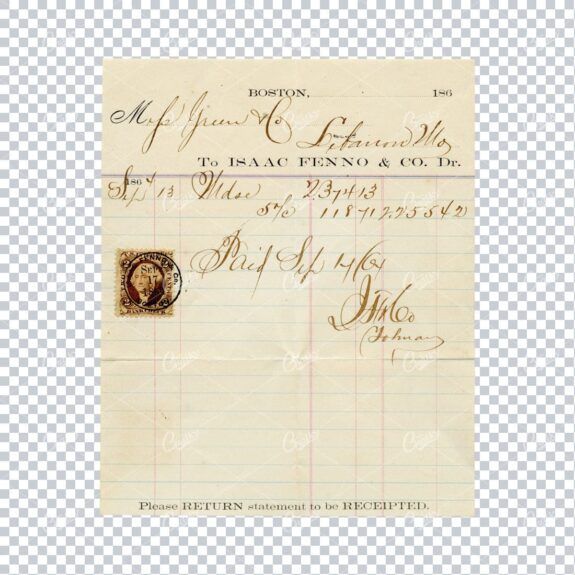 BOSTON, 186
Mess Green & Co
Lebanon
To ISAAC FENNO & CO. Dr.
1864
Sep 13 Mdse 237413
5% 11871 225542
Paid Sep 14/64
IF&Co
Please RETURN statement to be RECEIPTED.